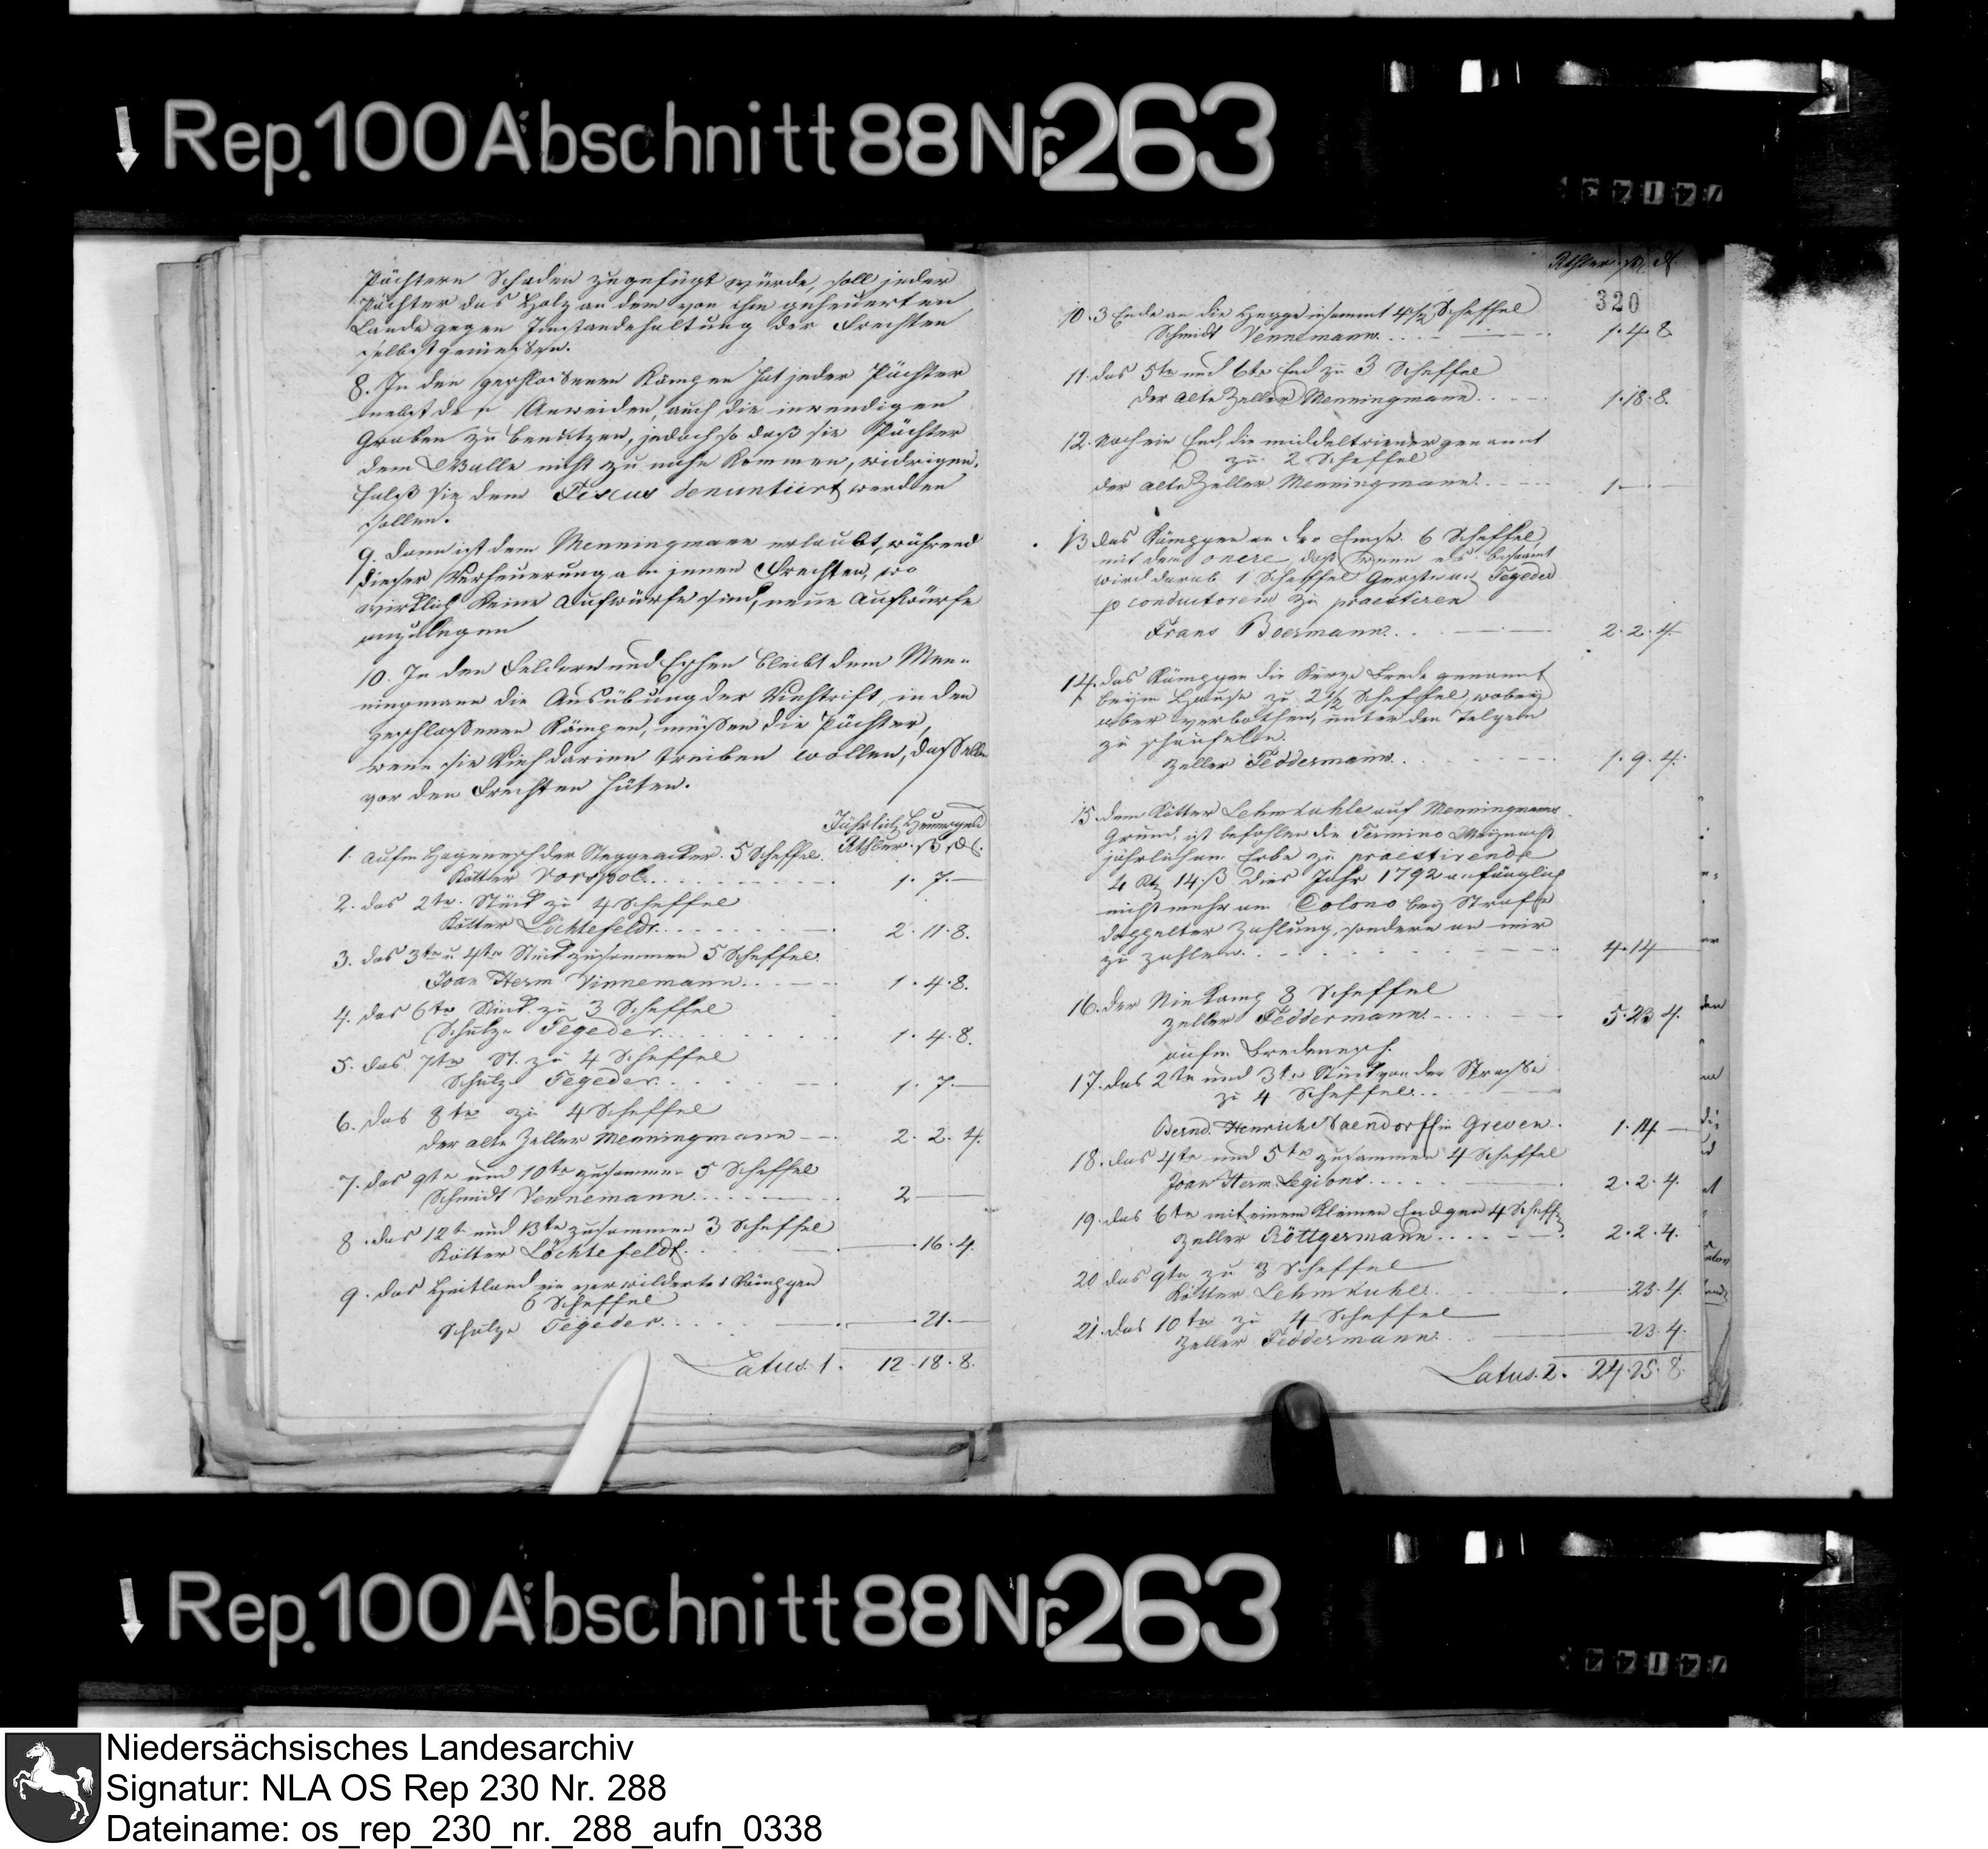 Rep. 100 Abschnitt 88 Nr. 263
Pächtern Schaden zugefügt würde, soll jeder
Pächter das Holz an dem von ihm geheuerten
Lande gegen Instandehaltung der Frechten
selbst geniessen.
8. In den geschlossenen Kämpen hat jeder Pächter
nebst den Anweiden auch die inwendigen
Graben zu benutzen, jedoch so daß sie Pächter
dem Walle nicht zu nahe kommen, widrigen-
falß sie dem Fiscus denuntiirt werden
sollen.
9. Dann ist dem Menningmann erlaubt, während
dieser Verheuerung an jenen Frechten, wo
wirklich keine Aufwürfe sind, neue Aufwürfe
anzulegen
10. In den Feldern und Eschen bleibt dem Men-
ningmann die Ausübung der Viehtrift, in den
geschlossenen Kämpen, müßen die Pächter,
wenn sie Vieh darinn treiben wollen, dasselbe
vor den Frechten hüten.
Jährlich Heuergeld
Rthler. ß. d.
1. Aufm Hagenesch der Steggeacker. 5 Scheffel.
Kötter Vorspol 1. 7.—
2. das 2te. Stück zu 4 Scheffel
Kötter Löchtefeldt 2. 11. 8.
3. das 3te u 4te Stück zusammen 5 Scheffel.
Joan Herm Vinnemann 1. 4. 8.
4. das 6te Stück zu 3 Scheffel
Schulze Tegeder 1. 4. 8.
5. das 7te St. zu 4 Scheffel
Schulze Tegeder 1. 7.—
6. das 8te zu 4 Scheffel
der alte Zeller Menningmann 2. 2. 4.
7. das 9te und 10te zusammen 5 Scheffel
Schmidt Vennemann 2 —
8. das 12te und 13te zusammen 3 Scheffel
Kötter Löchtefeldt — 16. 4.
9. das Heitland ein verwildertes Kämpgen
6 Scheffel
Schulze Tegeder — 21.—
Latus. 1. 12. 18. 8.
Rthler. ß. d.
320
10. 3 Ende an die Hegge insammt 4 1/2 Scheffel
Schmidt Vennemann 1. 4. 8.
11. das 5te und 6te End zu 3 Scheffel
der alte Zeller Menningmann 1. 18. 8.
12. Noch ein End, die middeltrier genannt
zu 2 Scheffel
der alte Zeller Menningmann 1 — —
13 das Kämpgen an der Emse 6 Scheffel
mit dem onere, daß wenn es besaamt
wird darab 1 Scheffel Gerste an Tegeder
p conductorem zu praestiren
Frans Boermann 2. 2. 4.
14. das Kämpgen die Kurze Brede genannt
beym Hause zu 2 1/2 Scheffel wobey
aber verbothen, unter den Telgen
zu schaufeln.
Zeller Feddermann 1. 9. 4.
15. dem Kötter Lehmkuhle auf Menningmanns
Grund, ist befohlen die Termino
jährlich am Erbe zu praestirende
4 Rt 14 ß dies Jahr 1792 anfänglich
nicht mehr am Colono bey Strafe
doppelter Zahlung, sondern an mir
zu zahlen 4. 14 —
16. der Niekamp 8 Scheffel
Zeller Feddermann 5. 23 4.
aufm Bredenesch.
17. das 2te und 3te Stück von der Strasse
zu 4 Scheffel
Bernd. Henrich Naendorff in Greven. 1. 14. —
18. das 4te und 5te zusammen 4 Scheffel
Joan Herm. Legions 2. 2. 4.
19. das 6te mit einem kleinen Endgen 4 Scheff.
Zeller Röttgermann 2. 2. 4.
20 das 9te zu 3 Scheffel
Kötter Lehmkuhle — 23. 4.
21. das 10te zu 4 Scheffel
Zeller Feddermann — 23. 4.
Latus. 2. 24. 25. 8.
Rep. 100 Abschnitt 88 Nr. 263
Niedersächsisches Landesarchiv
Signatur: NLA OS Rep 230 Nr. 288
Dateiname: os_rep_230_nr._288_aufn_0338